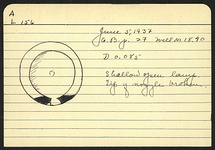 A
L 156
June 5, 1937
G.B. p. 27 Well M 18:90
D. 0.085
Shallow open lamp.
Tip of nozzle broken.